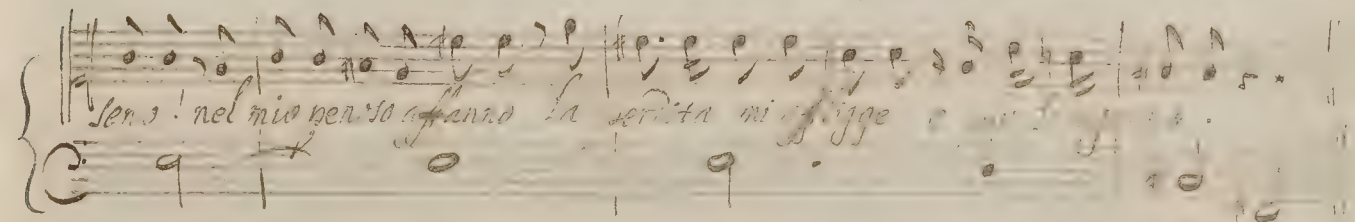 seno! nel mio penoso affanno la perdita mi affligge e